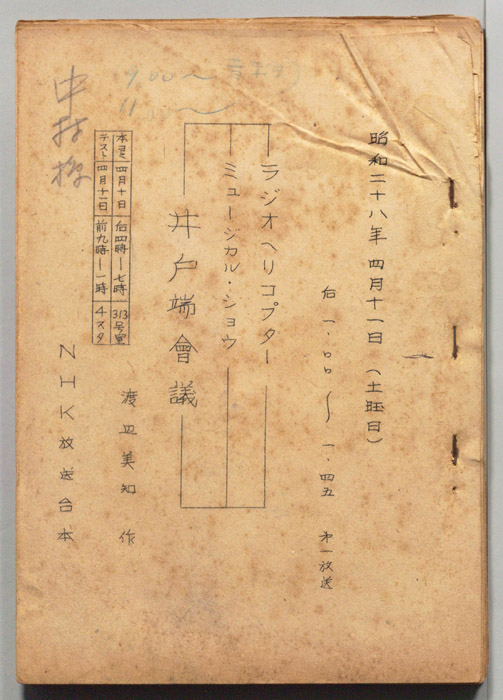 昭和二十八年 四月十一日 (土旺日)
后 一.〇〇〜 一.四五 第一放送
ラジオヘリコプター
ミュージカル・ショウ
井戸端會議
渡辺美知 作
本ヨミ 四月十日 后四時ー七時 313号室
テスト 四月十一日 前九時ー一時 4スタ
NHK放送台本
中村様